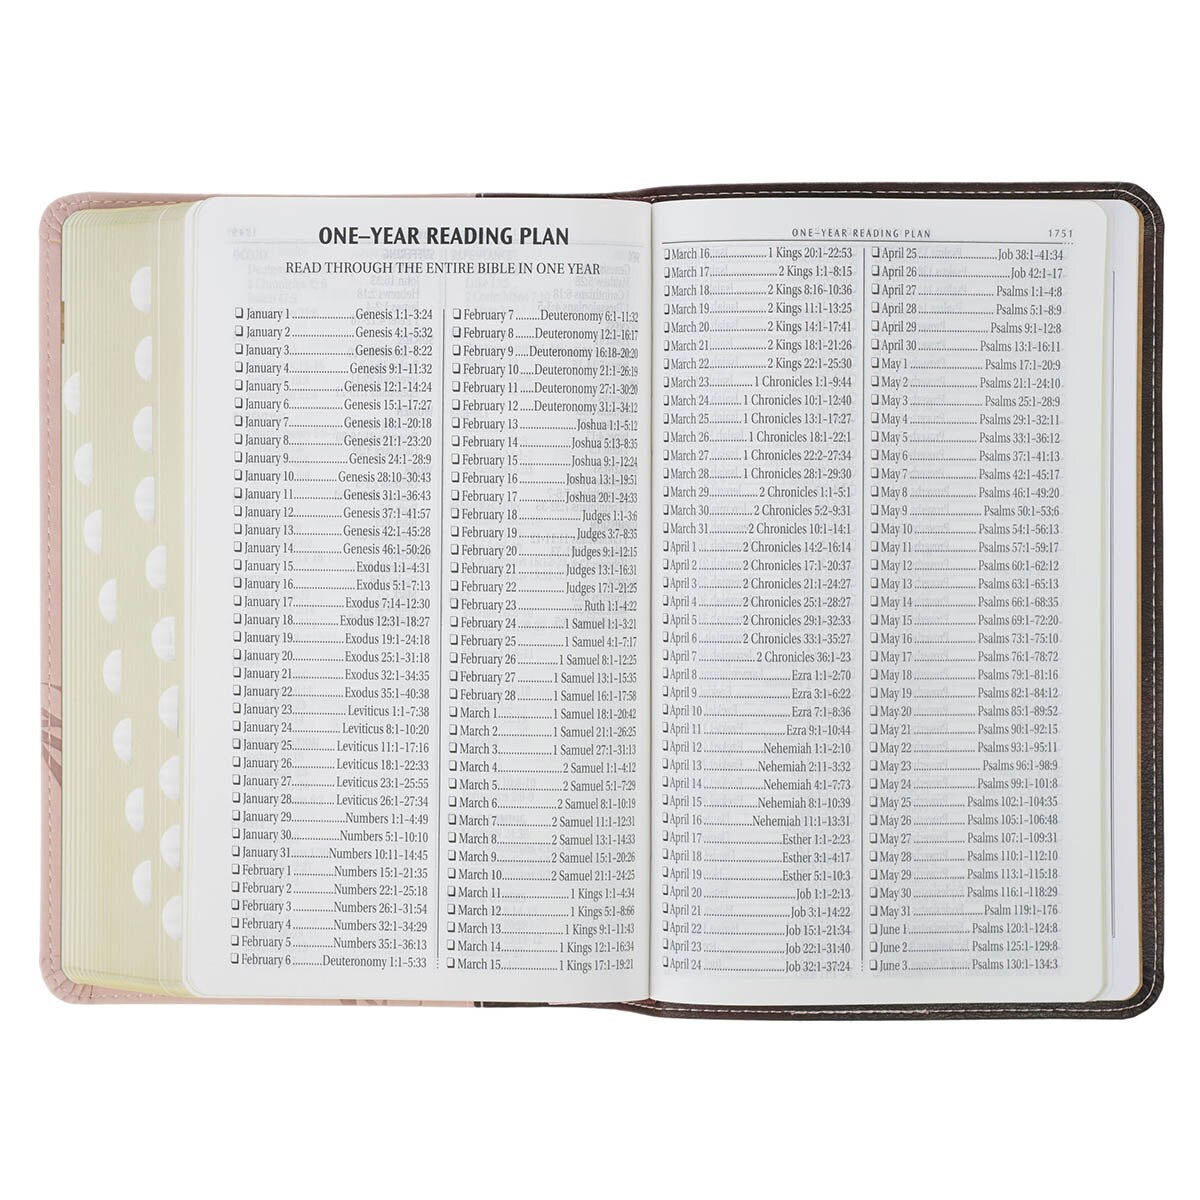 ONE–YEAR READING PLAN
READ THROUGH THE ENTIRE BIBLE IN ONE YEAR
❑ January 1 ... Genesis 1:1–3:24
❑ January 2 ... Genesis 4:1–5:32
❑ January 3 ... Genesis 6:1–8:22
❑ January 4 ... Genesis 9:1–11:32
❑ January 5 ... Genesis 12:1–14:24
❑ January 6 ... Genesis 15:1–17:27
❑ January 7 ... Genesis 18:1–20:18
❑ January 8 ... Genesis 21:1–23:20
❑ January 9 ... Genesis 24:1–28:9
❑ January 10 ... Genesis 28:10–30:43
❑ January 11 ... Genesis 31:1–36:43
❑ January 12 ... Genesis 37:1–41:57
❑ January 13 ... Genesis 42:1–45:28
❑ January 14 ... Genesis 46:1–50:26
❑ January 15 ... Exodus 1:1–4:31
❑ January 16 ... Exodus 5:1–7:13
❑ January 17 ... Exodus 7:14–12:30
❑ January 18 ... Exodus 12:31–18:27
❑ January 19 ... Exodus 19:1–24:18
❑ January 20 ... Exodus 25:1–31:18
❑ January 21 ... Exodus 32:1–34:35
❑ January 22 ... Exodus 35:1–40:38
❑ January 23 ... Leviticus 1:1–7:38
❑ January 24 ... Leviticus 8:1–10:20
❑ January 25 ... Leviticus 11:1–17:16
❑ January 26 ... Leviticus 18:1–22:33
❑ January 27 ... Leviticus 23:1–25:55
❑ January 28 ... Leviticus 26:1–27:34
❑ January 29 ... Numbers 1:1–4:49
❑ January 30 ... Numbers 5:1–10:10
❑ January 31 ... Numbers 10:11–14:45
❑ February 1 ... Numbers 15:1–21:35
❑ February 2 ... Numbers 22:1–25:18
❑ February 3 ... Numbers 26:1–31:54
❑ February 4 ... Numbers 32:1–34:29
❑ February 5 ... Numbers 35:1–36:13
❑ February 6 ... Deuteronomy 1:1–5:33
❑ February 7 ... Deuteronomy 6:1–11:32
❑ February 8 ... Deuteronomy 12:1–16:17
❑ February 9 ... Deuteronomy 16:18–20:20
❑ February 10 ... Deuteronomy 21:1–26:19
❑ February 11 ... Deuteronomy 27:1–30:20
❑ February 12 ... Deuteronomy 31:1–34:12
❑ February 13 ... Joshua 1:1–5:12
❑ February 14 ... Joshua 5:13–8:35
❑ February 15 ... Joshua 9:1–12:24
❑ February 16 ... Joshua 13:1–19:51
❑ February 17 ... Joshua 20:1–24:33
❑ February 18 ... Judges 1:1–3:6
❑ February 19 ... Judges 3:7–8:35
❑ February 20 ... Judges 9:1–12:15
❑ February 21 ... Judges 13:1–16:31
❑ February 22 ... Judges 17:1–21:25
❑ February 23 ... Ruth 1:1–4:22
❑ February 24 ... 1 Samuel 1:1–3:21
❑ February 25 ... 1 Samuel 4:1–7:17
❑ February 26 ... 1 Samuel 8:1–12:25
❑ February 27 ... 1 Samuel 13:1–15:35
❑ February 28 ... 1 Samuel 16:1–17:58
❑ March 1 ... 1 Samuel 18:1–20:42
❑ March 2 ... 1 Samuel 21:1–26:25
❑ March 3 ... 1 Samuel 27:1–31:13
❑ March 4 ... 2 Samuel 1:1–4:12
❑ March 5 ... 2 Samuel 5:1–7:29
❑ March 6 ... 2 Samuel 8:1–10:19
❑ March 7 ... 2 Samuel 11:1–12:31
❑ March 8 ... 2 Samuel 13:1–14:33
❑ March 9 ... 2 Samuel 15:1–20:26
❑ March 10 ... 2 Samuel 21:1–24:25
❑ March 11 ... 1 Kings 1:1–4:34
❑ March 12 ... 1 Kings 5:1–8:66
❑ March 13 ... 1 Kings 9:1–11:43
❑ March 14 ... 1 Kings 12:1–16:34
❑ March 15 ... 1 Kings 17:1–19:21
ONE–YEAR READING PLAN 1751
❑ March 16 ... 1 Kings 20:1–22:53
❑ March 17 ... 2 Kings 1:1–8:15
❑ March 18 ... 2 Kings 8:16–10:36
❑ March 19 ... 2 Kings 11:1–13:25
❑ March 20 ... 2 Kings 14:1–17:41
❑ March 21 ... 2 Kings 18:1–21:26
❑ March 22 ... 2 Kings 22:1–25:30
❑ March 23 ... 1 Chronicles 1:1–9:44
❑ March 24 ... 1 Chronicles 10:1–12:40
❑ March 25 ... 1 Chronicles 13:1–17:27
❑ March 26 ... 1 Chronicles 18:1–22:1
❑ March 27 ... 1 Chronicles 22:2–27:34
❑ March 28 ... 1 Chronicles 28:1–29:30
❑ March 29 ... 2 Chronicles 1:1–5:1
❑ March 30 ... 2 Chronicles 5:2–9:31
❑ March 31 ... 2 Chronicles 10:1–14:1
❑ April 1 ... 2 Chronicles 14:2–16:14
❑ April 2 ... 2 Chronicles 17:1–20:37
❑ April 3 ... 2 Chronicles 21:1–24:27
❑ April 4 ... 2 Chronicles 25:1–28:27
❑ April 5 ... 2 Chronicles 29:1–32:33
❑ April 6 ... 2 Chronicles 33:1–35:27
❑ April 7 ... 2 Chronicles 36:1–23
❑ April 8 ... Ezra 1:1–2:70
❑ April 9 ... Ezra 3:1–6:22
❑ April 10 ... Ezra 7:1–8:36
❑ April 11 ... Ezra 9:1–10:44
❑ April 12 ... Nehemiah 1:1–2:10
❑ April 13 ... Nehemiah 2:11–3:32
❑ April 14 ... Nehemiah 4:1–7:73
❑ April 15 ... Nehemiah 8:1–10:39
❑ April 16 ... Nehemiah 11:1–13:31
❑ April 17 ... Esther 1:1–2:23
❑ April 18 ... Esther 3:1–4:17
❑ April 19 ... Esther 5:1–10:3
❑ April 20 ... Job 1:1–2:13
❑ April 21 ... Job 3:1–14:22
❑ April 22 ... Job 15:1–21:34
❑ April 23 ... Job 22:1–31:40
❑ April 24 ... Job 32:1–37:24
❑ April 25 ... Job 38:1–41:34
❑ April 26 ... Job 42:1–17
❑ April 27 ... Psalms 1:1–4:8
❑ April 28 ... Psalms 5:1–8:9
❑ April 29 ... Psalms 9:1–12:8
❑ April 30 ... Psalms 13:1–16:11
❑ May 1 ... Psalms 17:1–20:9
❑ May 2 ... Psalms 21:1–24:10
❑ May 3 ... Psalms 25:1–28:9
❑ May 4 ... Psalms 29:1–32:11
❑ May 5 ... Psalms 33:1–36:12
❑ May 6 ... Psalms 37:1–41:13
❑ May 7 ... Psalms 42:1–45:17
❑ May 8 ... Psalms 46:1–49:20
❑ May 9 ... Psalms 50:1–53:6
❑ May 10 ... Psalms 54:1–56:13
❑ May 11 ... Psalms 57:1–59:17
❑ May 12 ... Psalms 60:1–62:12
❑ May 13 ... Psalms 63:1–65:13
❑ May 14 ... Psalms 66:1–68:35
❑ May 15 ... Psalms 69:1–72:20
❑ May 16 ... Psalms 73:1–75:10
❑ May 17 ... Psalms 76:1–78:72
❑ May 18 ... Psalms 79:1–81:16
❑ May 19 ... Psalms 82:1–84:12
❑ May 20 ... Psalms 85:1–89:52
❑ May 21 ... Psalms 90:1–92:15
❑ May 22 ... Psalms 93:1–95:11
❑ May 23 ... Psalms 96:1–98:9
❑ May 24 ... Psalms 99:1–101:8
❑ May 25 ... Psalms 102:1–104:35
❑ May 26 ... Psalms 105:1–106:48
❑ May 27 ... Psalms 107:1–109:31
❑ May 28 ... Psalms 110:1–112:10
❑ May 29 ... Psalms 113:1–115:18
❑ May 30 ... Psalms 116:1–118:29
❑ May 31 ... Psalm 119:1–176
❑ June 1 ... Psalms 120:1–124:8
❑ June 2 ... Psalms 125:1–129:8
❑ June 3 ... Psalms 130:1–134:3